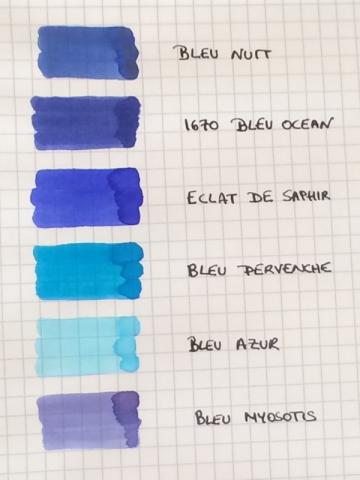 BLEU NUIT
1670 BLEU OCEAN
ECLAT DE SAPHIR
BLEU PERVENCHE
BLEU AZUR
BLEU MYOSOTIS